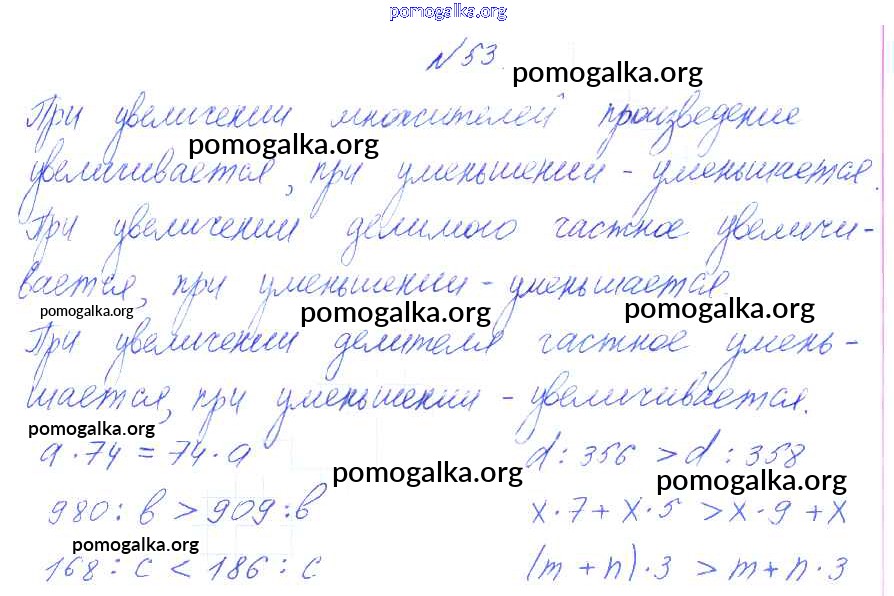 pomogalka.org
N 53.
pomogalka.org
При увеличении множителей произведение
pomogalka.org
увеличивается, при уменьшении - уменьшается.
При увеличении делимого частное увеличи-
вается, при уменьшении - уменьшается.
pomogalka.org pomogalka.org pomogalka.org
При увеличении делителя частное умень-
шается, при уменьшении - увеличивается.
pomogalka.org
a · 74 = 74 · a d : 356 > d : 358
pomogalka.org pomogalka.org
980 : b > 909 : b x · 7 + x · 5 > x · 9 + x
pomogalka.org
168 : c < 186 : c (m + n) · 3 > m + n · 3